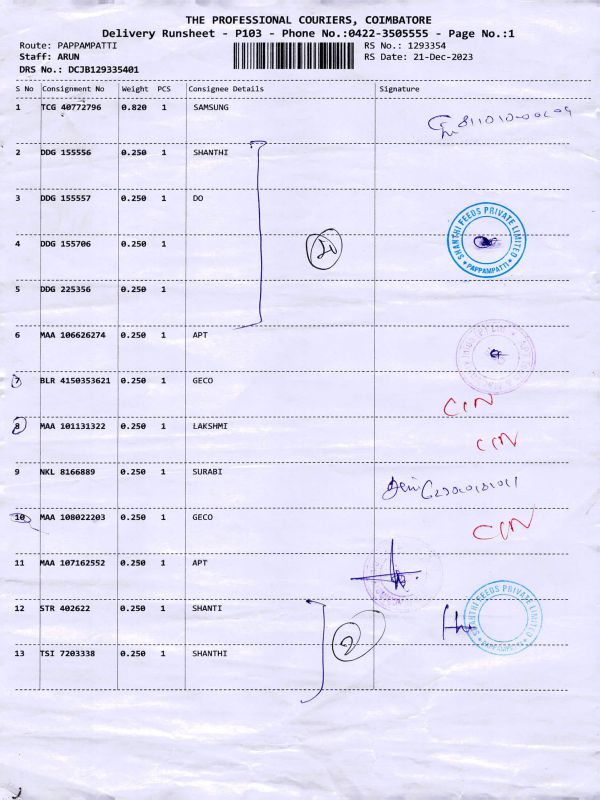 THE PROFESSIONAL COURIERS, COIMBATORE
Delivery Runsheet - P103 - Phone No.:0422-3505555 - Page No.:1
Route: PAPPAMPATTI RS No.: 1293354
Staff: ARUN RS Date: 21-Dec-2023
DRS No.: DCJB129335401
S No Consignment No Weight PCS Consignee Details Signature
1 TCG 40772796 0.820 1 SAMSUNG
2 DDG 155556 0.250 1 SHANTHI
3 DDG 155557 0.250 1 DO
SHANTHI FEEDS PRIVATE LIMITED
* PAPPAMPATTI *
4 DDG 155706 0.250 1
5 DDG 225356 0.250 1
6 MAA 106626274 0.250 1 APT
7 BLR 4150353621 0.250 1 GECO
CIN
8 MAA 101131322 0.250 1 LAKSHMI
CIN
9 NKL 8166889 0.250 1 SURABI
10 MAA 108022203 0.250 1 GECO
CIN
11 MAA 107162552 0.250 1 APT
12 STR 402622 0.250 1 SHANTI
SHANTHI FEEDS PRIVATE LIMITED
* PAPPAMPATTI *
2
13 TSI 7203338 0.250 1 SHANTHI